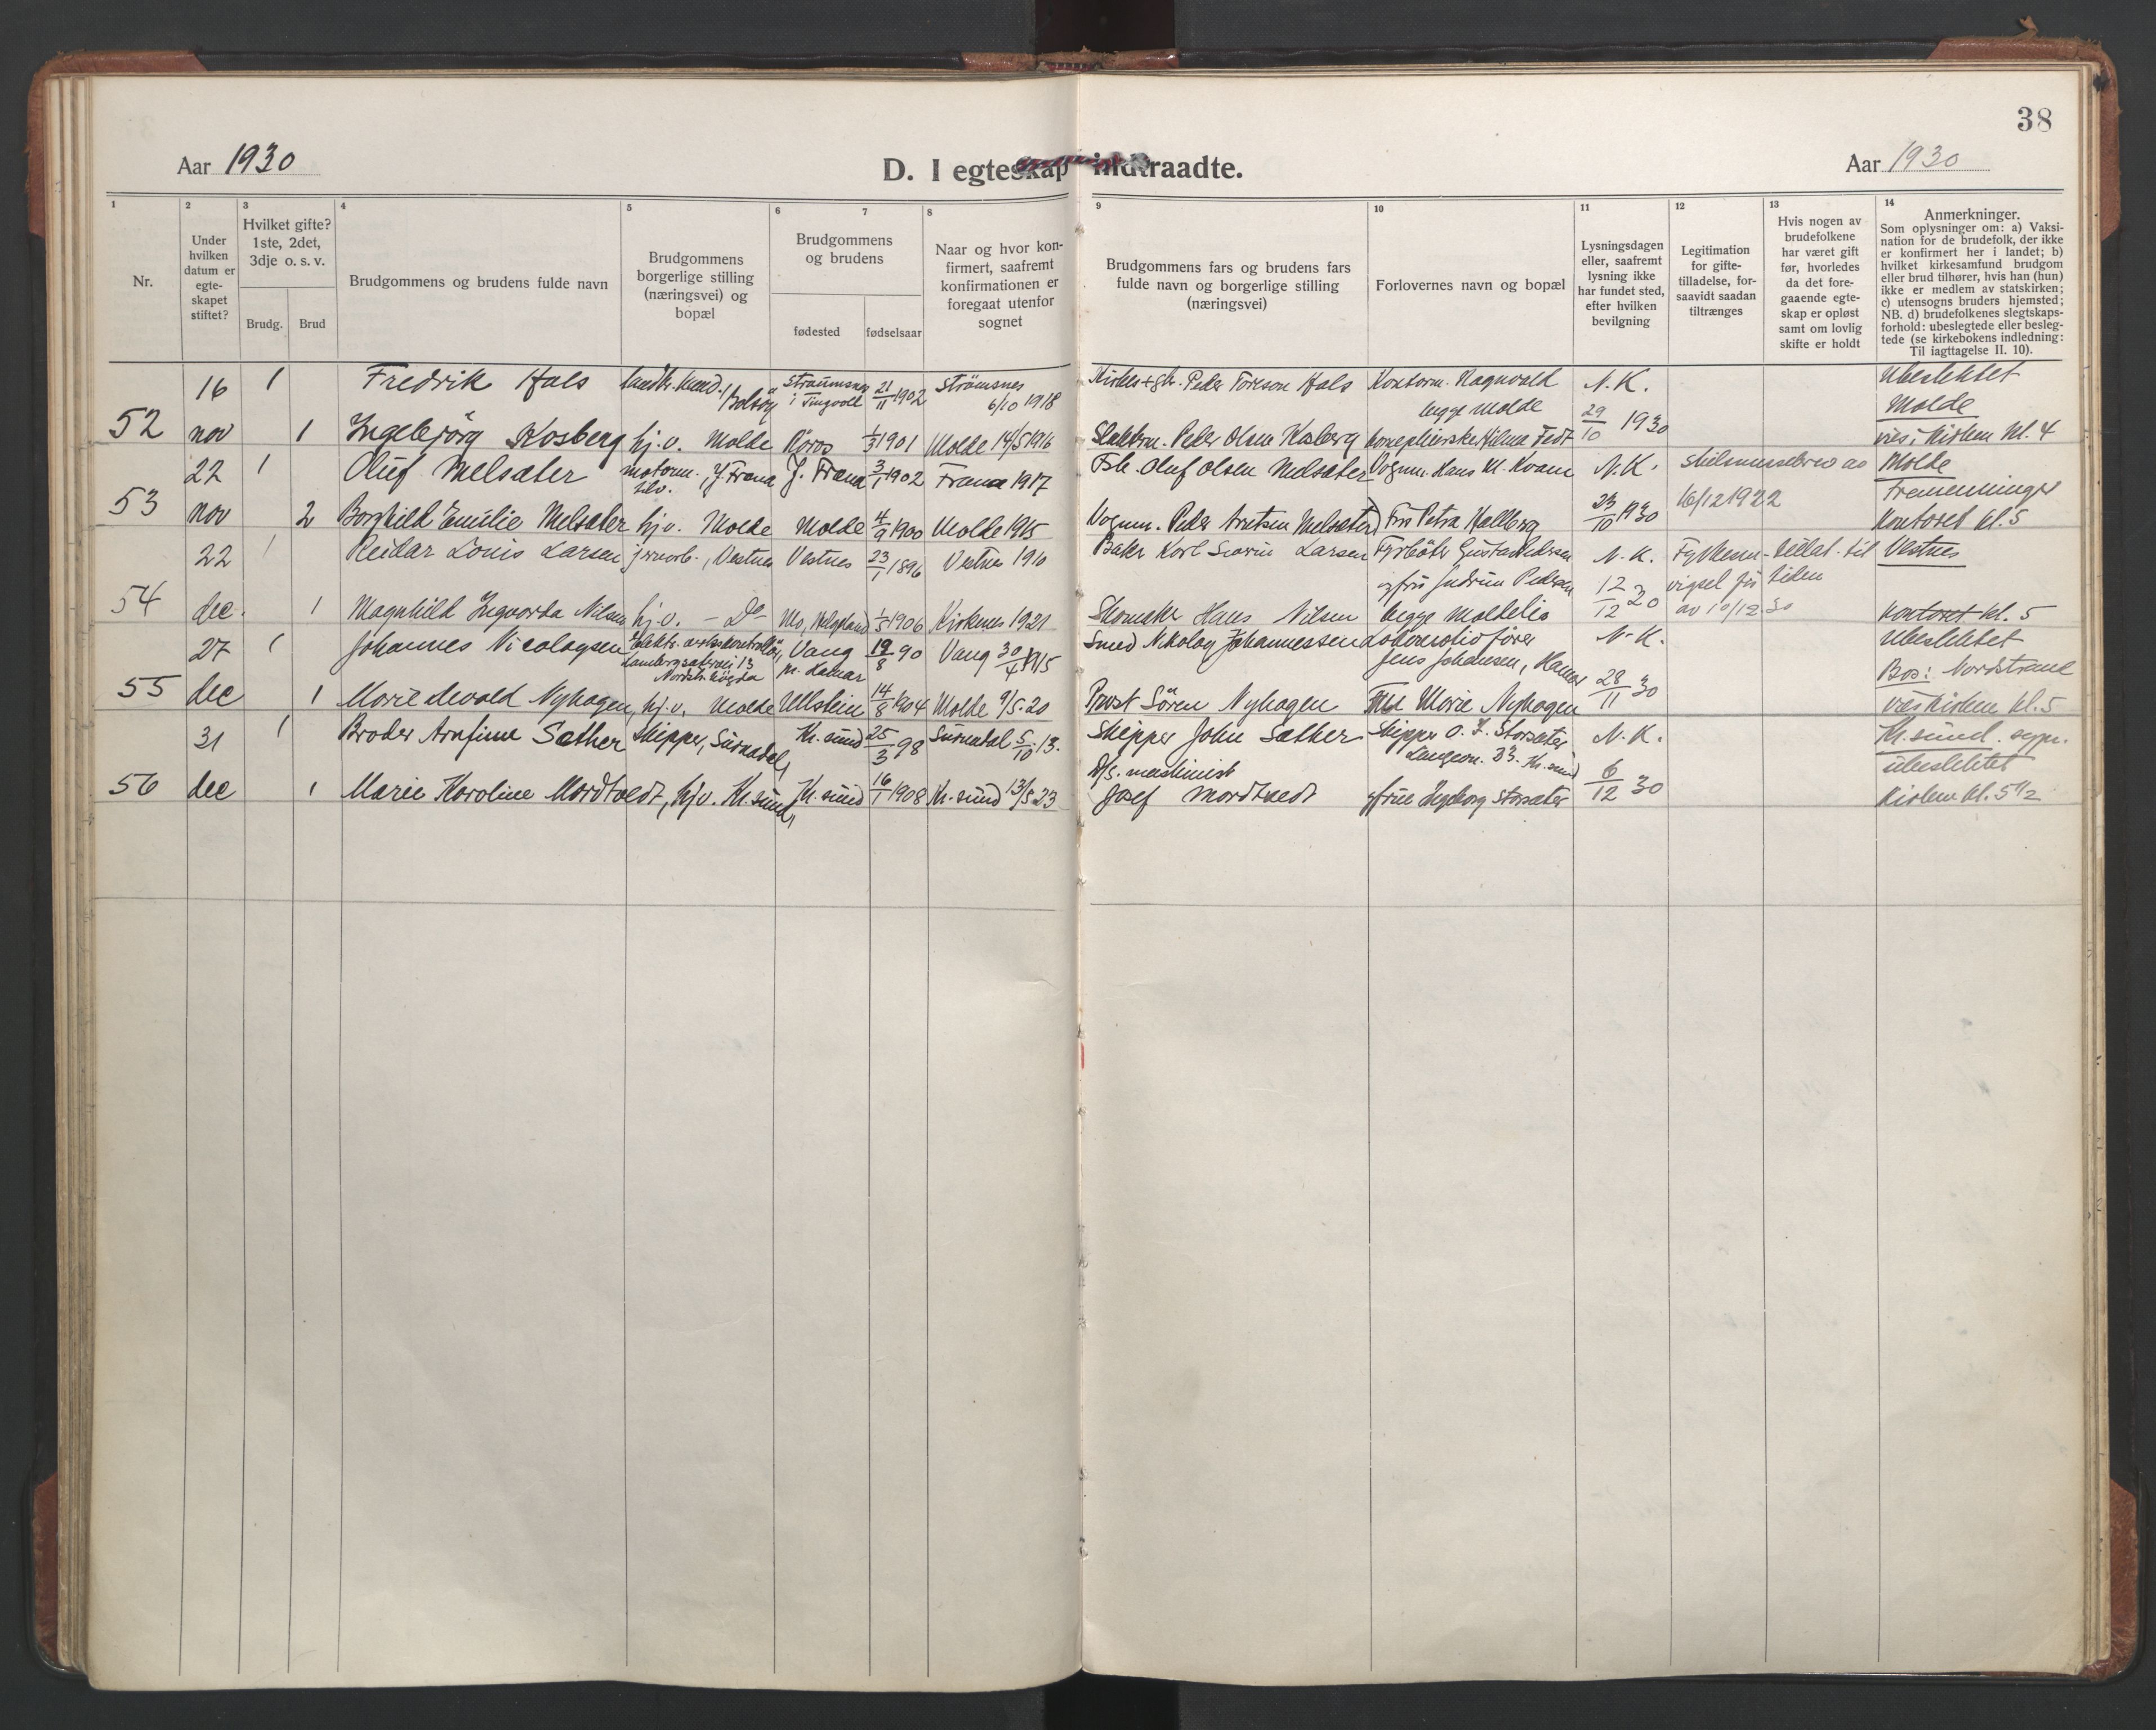 38
Aar 1930
D. I egteskap indtraadte.
Aar 1930
1 2 3 4 5 6 7 8 9 10 11 12 13 14
Nr.
Under hvilken datum er egte-skapet stiftet?
Hvilket gifte? 1ste, 2det, 3dje o. s. v.
Brudg. Brud
Brudgommens og brudens fulde navn
Brudgommens borgerlige stilling (næringsvei) og bopæl
Brudgommens og brudens
fødested fødselsaar
Naar og hvor kon-firmert, saafremt konfirmationen er foregaat utenfor sognet
Brudgommens fars og brudens fars fulde navn og borgerlige stilling (næringsvei)
Forlovernes navn og bopæl
Lysningsdagen eller, saafremt lysning ikke har fundet sted, efter hvilken bevilgning
Legitimation for gifte-tilladelse, for-saavidt saadan tiltrænges
Hvis nogen av brudefolkene har været gift før, hvorledes da det fore-gaaende egte-skap er opløst samt om lovlig skifte er holdt
Anmerkninger.
Som oplysninger om: a) Vaksi-nation for de brudefolk, der ikke er konfirmert her i landet; b) hvilket kirkesamfund brudgom eller brud tilhører, hvis han (hun) ikke er medlem av statskirken; c) utensogns bruders hjemsted; NB. d) brudefolkenes slegtskaps-forhold: ubeslegtede eller besleg-tede (se kirkebokens indledning: Til iagttagelse II. 10).
16 1 Fredrik Hals Bolsöy Straumsnes i Tingvoll 21/11 1902 Strömsnes 6/10 1918 Peder Toreson Hals Kontorm. Ragnvald N. K. Ubeslektet
begge Molde 29/10 1930 Molde
52 nov 1 Ingebjörg Kosberg hj. v. Molde Röros 1/3 1901 Molde 14/5 1916 Peder Olsen Kosberg Hilma Fedt vies i kirken kl. 4
22 1 Oluf Melsæter motorm. J. Fræna J. Fræna 3/1 1902 Fræna 1917 Fsk. Oluf Olsen Melsæter Vognm. Hans M. Kvam N. K. Skilsmissebrev av Molde
16/12 1922 Tremenninger
53 nov 2 Borghild Emilie Melsæter hj. v. Molde Molde 4/9 1900 Molde 1915 Vognm. Peder Melsæter Fru Petra Hallberg 23/10 1930 Kontoret kl. 5
22 1 Reidar Louis Larsen jernarb., Vestnes Vestnes 23/1 1896 Vestnes 1910 Baker Karl Severin Larsen Fyrböter Gustav Pedersen N. K. Fylkesm. tillat. til Vestnes
og fru Gudrun Pedersen 12/12 30 vigsel før tiden
54 dec. 1 Magnhild Ingvarda Nilsen hj. v. - Do Mo, Helgeland 1/5 1906 Kirkenes 1921 Skomaker Hans Nilsen begge Moldelia av 10/12 30 Kontoret kl. 5
27 1 Johannes Nicolaysen Elektr. Vang 19/8 90 Vang 30/4 1915 Smed Nikolay Johannessen Lokomotivfører N. K. Ubeslektet
13 Nordstr.høgda pr. Hamar Jens Johansen, Hamar Bos: Nordstrand
55 dec 1 Marie Nyhagen, hj. v. Molde Ullstein 14/8 1904 Molde 9/5-20 Prost Sören Nyhagen Marie Nyhagen 28/11 30 vies i kirken kl. 5
31 1 Broder Arnfinn Sæther Skipper, Surnadal, Kr. sund 25/3 98 Surnadal 5/10-13. Skipper John Sæther Skipper O. J. Storsæter N. K. Kr. sund. sogn.
D/S. maskinist Langvn. 33. Kr. sund ubeslektet
56 dec 1 Marie Karoline Mordtvedt, hj. v. Kr. sund, Kr. sund 16/1 1908 Kr. sund 13/5 23 Josef Mordtvedt og frue Ingeborg Storsæter 6/12 30 Kirken kl. 5 1/2